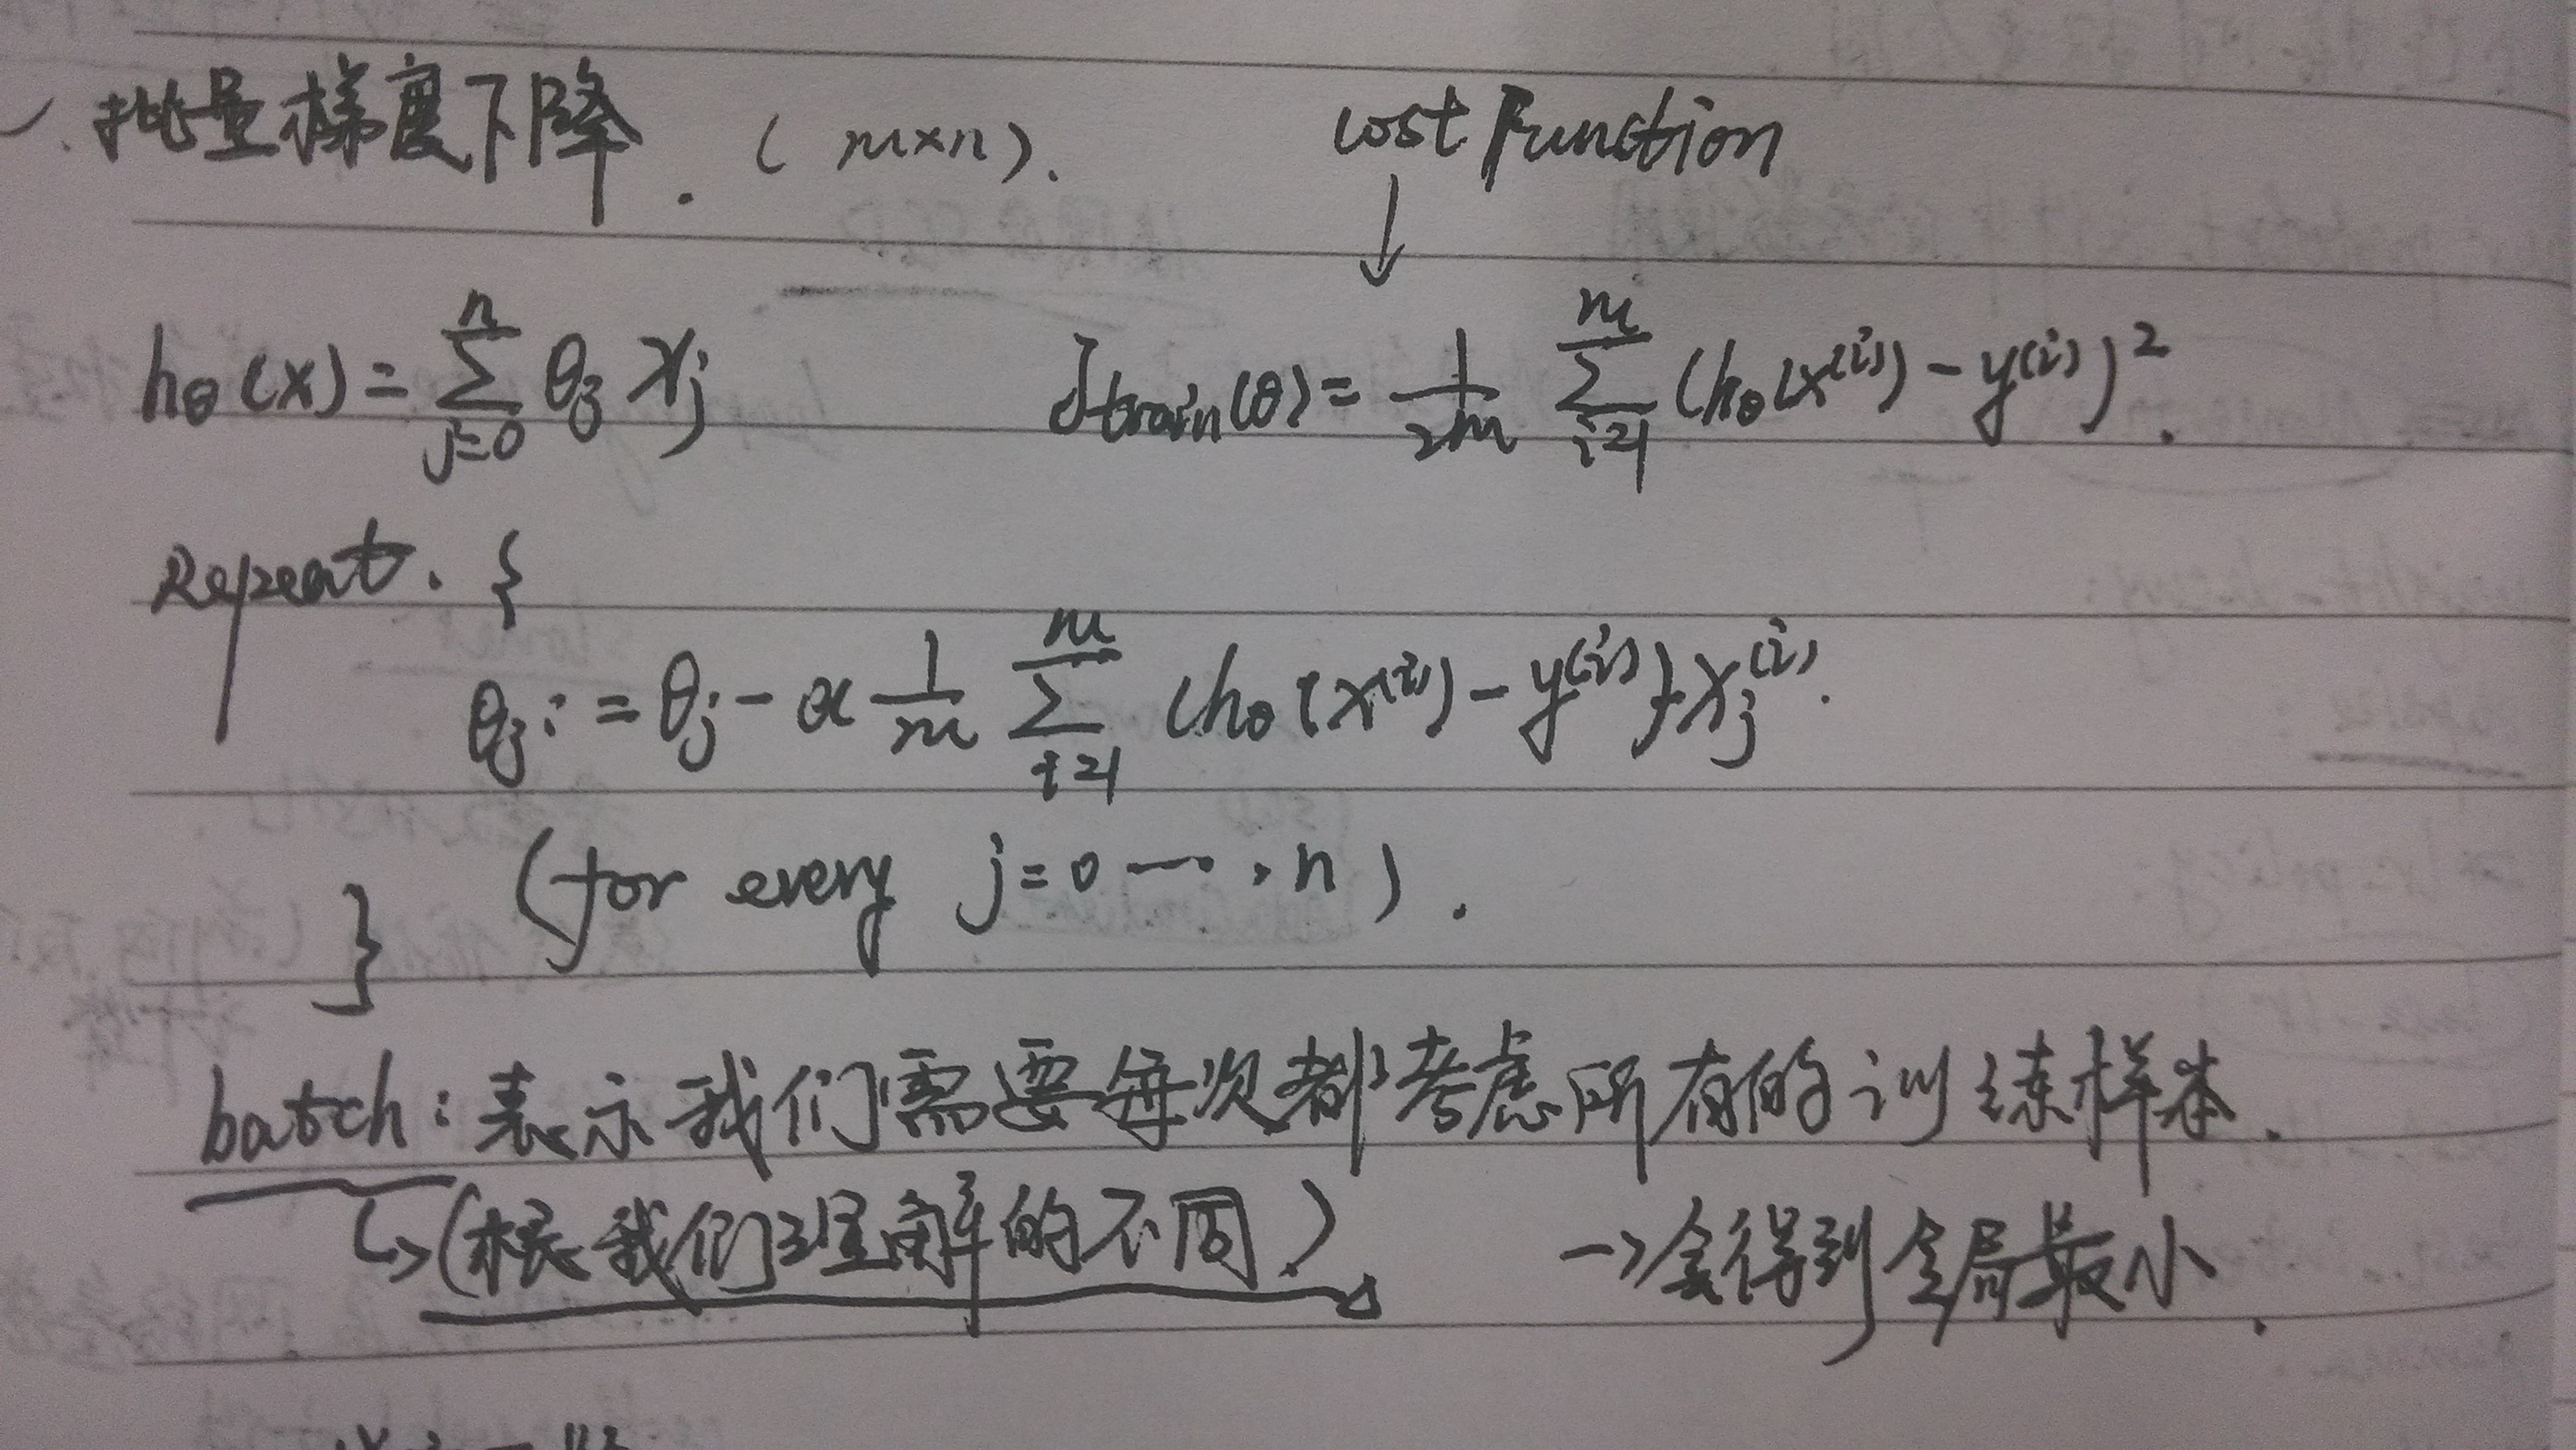 、批量梯度下降. (m×n). cost Function
↓
hθ(x) = ∑_{j=0}^{n} θj xj    Jtrain(θ) = 1/2m ∑_{i=1}^{m} (hθ(x^(i)) - y^(i))².
Repeat. {
θj := θj - α 1/m ∑_{i=1}^{m} (hθ(x^(i)) - y^(i)) xj^(i).
(for every j=0 ···, n).
}
batch: 表示我们需要每次都考虑所有的训练样本.
↳(根我们理解的不同.) →会得到全局最小.